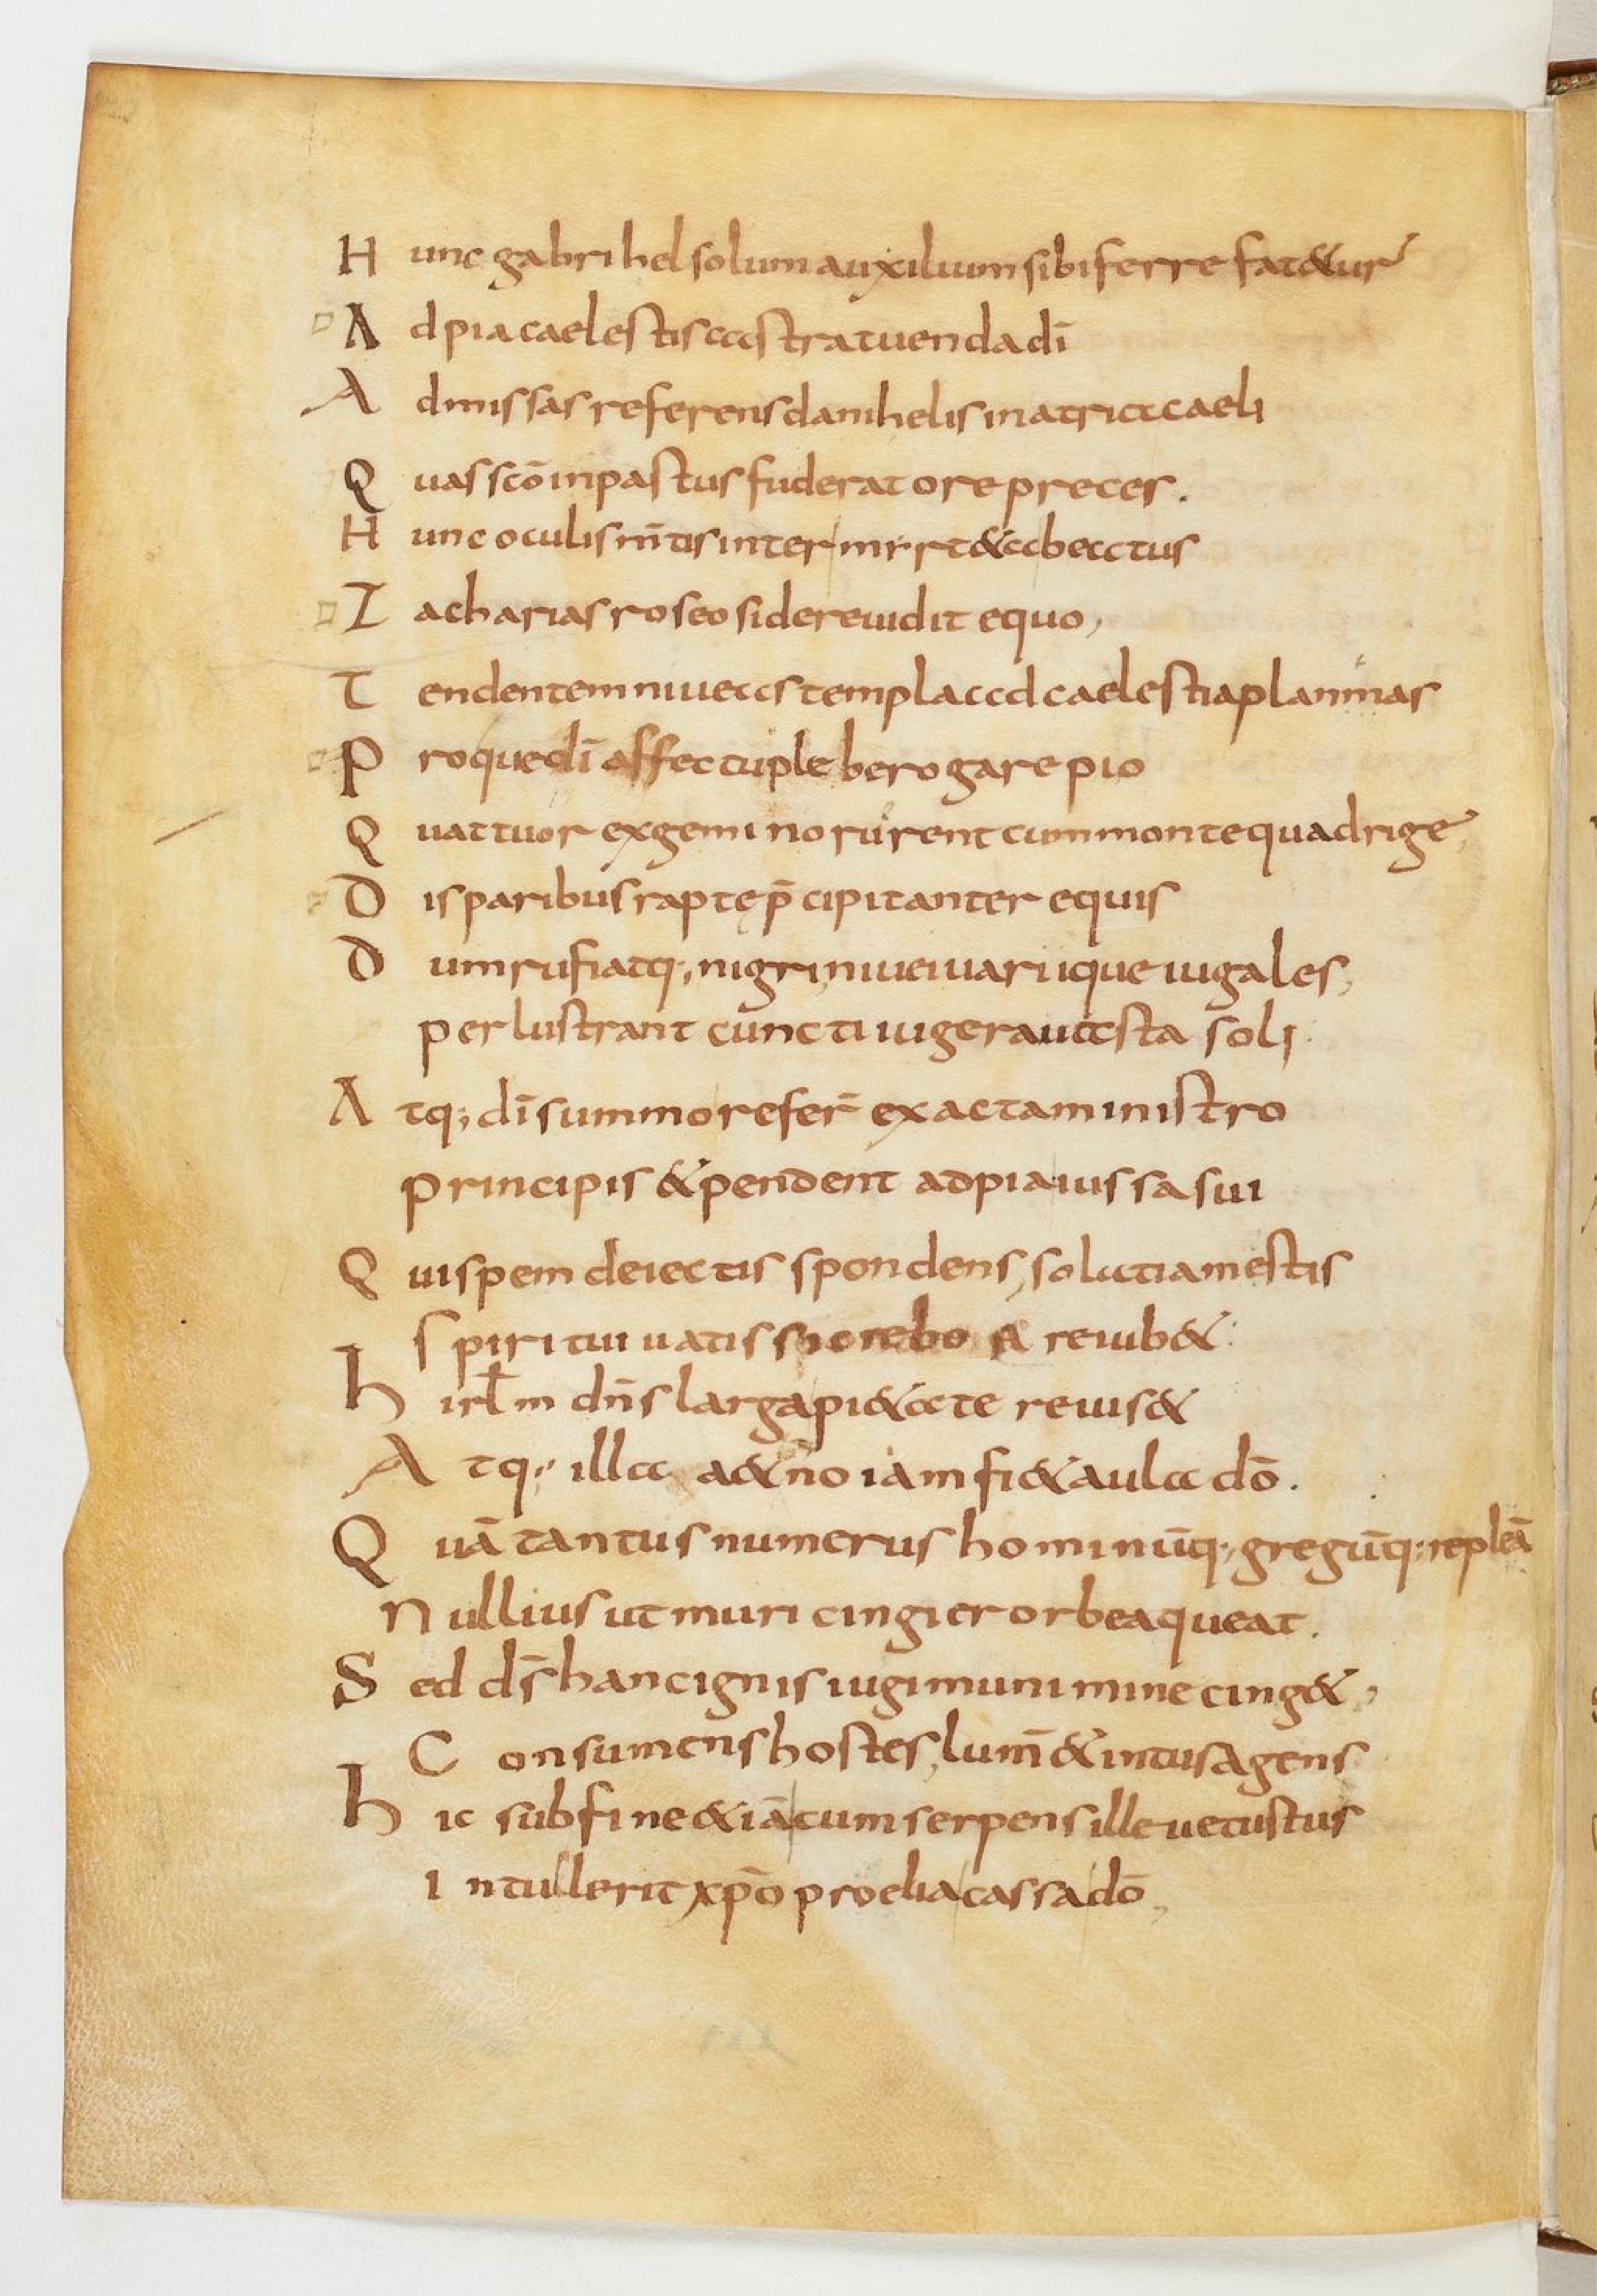 H unc gabrihel solum auxiluum sibi ferre fat&ur
A d pia caelestis castra tuenda dī
A dmissas referens danihelis in atria caeli
Q uas scō inpastus fuderat ore preces.
H unc oculis m̄tis inter &abeactus
Z acharias roseo sidere uidit equo,
T endentem niueas templa ad caelestia
P roque dī affectu plebe rogare pio
Q uattuor ex gemino rurent cum monte quadrige
D isparibus rapte p̄cipitanter equis
D um rufi atq; nigri, niuei uariique iugales,
per lustrant cuncti iugera uasta soli
A tq; dī summo refer̄ exacta ministro
principis & pendent ad pia iussa sui
Q ui spem deiectis spondens, solatia mestis
S piritui uatis reuib&
h irl̄m dn̄s larga pi&ate reuis&
A tq; illa a& no iam fi& aula dō.
Q uā tantus numerus hominūq; gregūq; repleā
N ullius ut muri cingier orbe a queat.
S ed ds̄ hanc ignis iugi munimine cing&,
C onsumens hostes, lum̄ & intus agens
h ic sub fine & iā cum serpens ille uetustus
I ntullerit xp̄o proelia cassa dō,